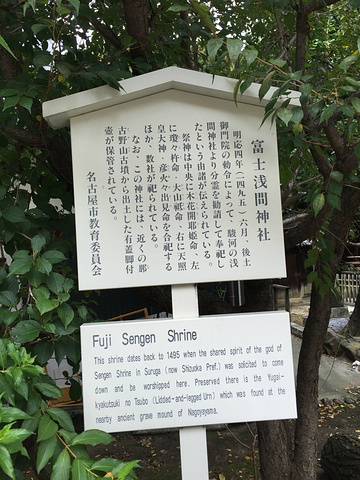 富士浅間神社
明応四年(一四九五)六月、後土
御門院の勅令によって、駿河の浅
間神社より分霊を勧請して奉祀し
たという由緒が伝えられている。
祭神は中央に木花開耶姫命、左
に瓊々杵命・大山祇命、右に天照
皇大神・彦火々出見命を合祀する
ほか、数社が祀られている。
なお、この神社には、近くの那
古野山古墳から出土した有蓋脚付
壺が保管されている。
名古屋市教育委員会
Fuji Sengen Shrine
This shrine dates back to 1495 when the shared spirit of the god of
Sengen Shrine in Suruga (now Shizuoka Pref.) was solicited to come
down and be worshipped here. Preserved there is the Yugai-
kyakutsuki no Tsubo (Lidded-and-legged Urn) which was found at the
nearby ancient grave mound of Nagoyayama.